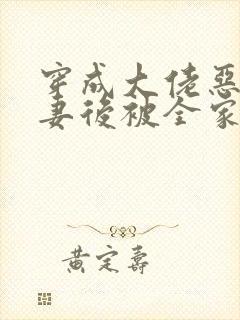 穿成大佬惡
妻後被全家
黃定壽